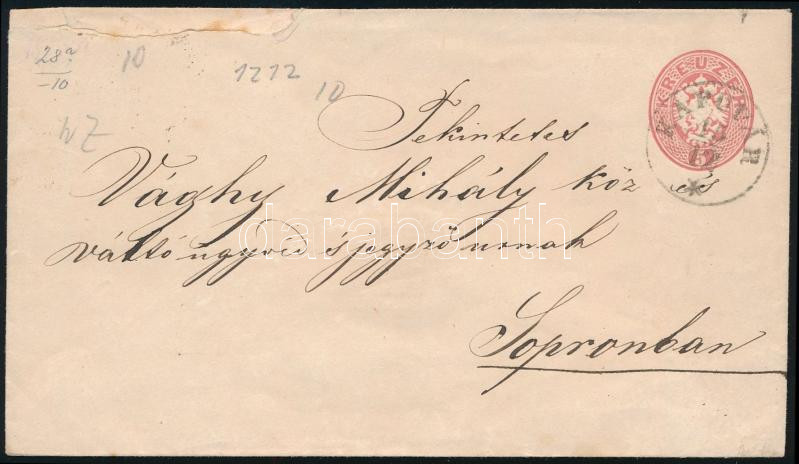 28a
-10
10
1212
10
WZ
KREUZER
KAPUVÁR
Tekintetes
Vághy Mihály köz és
váltó ügyvéd és jegyző urnak
Sopronban
darabanth